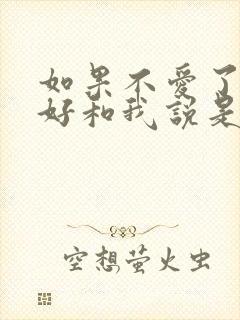 如果不愛了
好和我說是
空想萤火虫